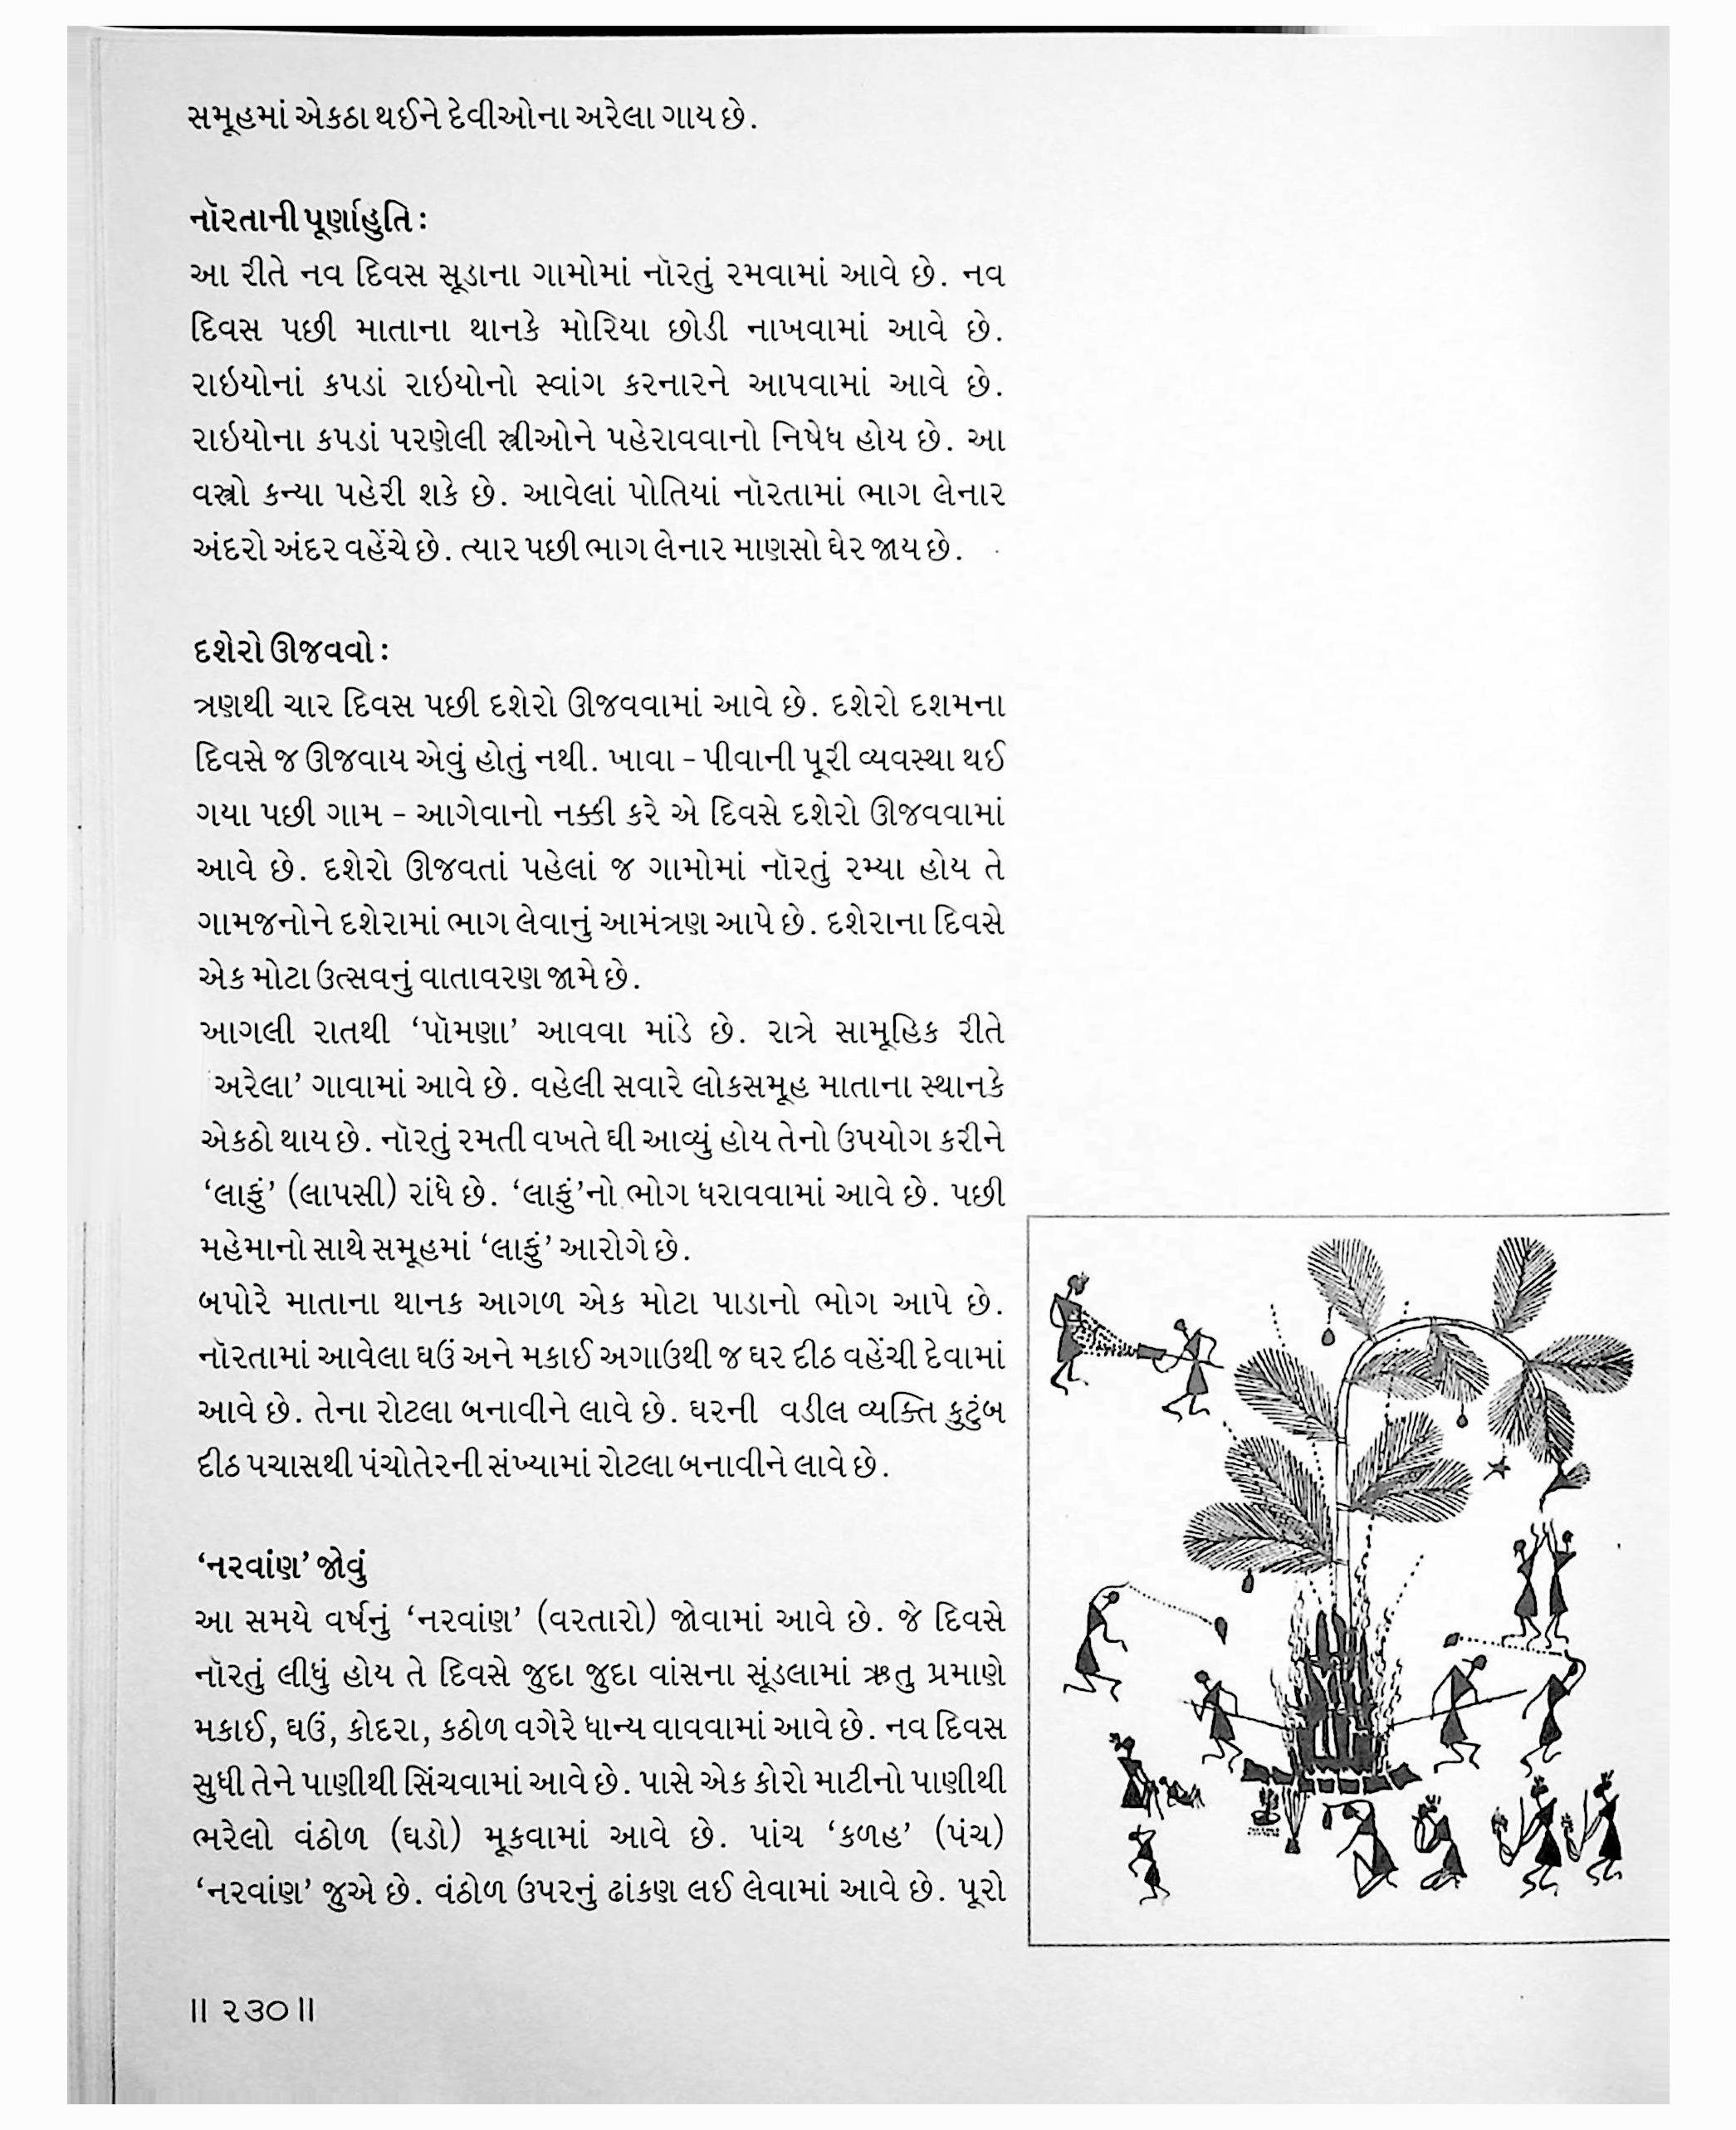 સમૂહમાં એકઠા થઈને દેવીઓના અરેલા ગાય છે.
નૉરતાની પૂર્ણાહુતિ :
આ રીતે નવ દિવસ સૂડાના ગામોમાં નૉરતું રમવામાં આવે છે. નવ
દિવસ પછી માતાના થાનકે મોરિયા છોડી નાખવામાં આવે છે.
રાઇયોનાં કપડાં રાઇયોનો સ્વાંગ કરનારને આપવામાં આવે છે.
રાઇયોના કપડાં પરણેલી સ્ત્રીઓને પહેરાવવાનો નિષેધ હોય છે. આ
વસ્ત્રો કન્યા પહેરી શકે છે. આવેલાં પોતિયાં નૉરતામાં ભાગ લેનાર
અંદરો અંદર વહેંચે છે. ત્યાર પછી ભાગ લેનાર માણસો ઘેર જાય છે.
દશેરો ઊજવવો :
ત્રણથી ચાર દિવસ પછી દશેરો ઊજવવામાં આવે છે. દશેરો દશમના
દિવસે જ ઊજવાય એવું હોતું નથી. ખાવા – પીવાની પૂરી વ્યવસ્થા થઈ
ગયા પછી ગામ – આગેવાનો નક્કી કરે એ દિવસે દશેરો ઊજવવામાં
આવે છે. દશેરો ઊજવતાં પહેલાં જ ગામોમાં નૉરતું રમ્યા હોય તે
ગામજનોને દશેરામાં ભાગ લેવાનું આમંત્રણ આપે છે. દશેરાના દિવસે
એક મોટા ઉત્સવનું વાતાવરણ જામે છે.
આગલી રાતથી ‘પૉમણા’ આવવા માંડે છે. રાત્રે સામૂહિક રીતે
‘અરેલા’ ગાવામાં આવે છે. વહેલી સવારે લોકસમૂહ માતાના સ્થાનકે
એકઠો થાય છે. નૉરતું રમતી વખતે ઘી આવ્યું હોય તેનો ઉપયોગ કરીને
‘લાફું’ (લાપસી) રાંધે છે. ‘લાફું’નો ભોગ ધરાવવામાં આવે છે. પછી
મહેમાનો સાથે સમૂહમાં ‘લાફું’ આરોગે છે.
બપોરે માતાના થાનક આગળ એક મોટા પાડાનો ભોગ આપે છે.
નૉરતામાં આવેલા ઘઉં અને મકાઈ અગાઉથી જ ઘર દીઠ વહેંચી દેવામાં
આવે છે. તેના રોટલા બનાવીને લાવે છે. ઘરની વડીલ વ્યક્તિ કુટુંબ
દીઠ પચાસથી પંચોતેરની સંખ્યામાં રોટલા બનાવીને લાવે છે.
‘નરવાંણ’ જોવું
આ સમયે વર્ષનું ‘નરવાંણ’ (વરતારો) જોવામાં આવે છે. જે દિવસે
નૉરતું લીધું હોય તે દિવસે જુદા જુદા વાંસના સૂંડલામાં ઋતુ પ્રમાણે
મકાઈ, ઘઉં, કોદરા, કઠોળ વગેરે ધાન્ય વાવવામાં આવે છે. નવ દિવસ
સુધી તેને પાણીથી સિંચવામાં આવે છે. પાસે એક કોરો માટીનો પાણીથી
ભરેલો વંઠોળ (ઘડો) મૂકવામાં આવે છે. પાંચ ‘કળહ’ (પંચ)
‘નરવાંણ’ જુએ છે. વંઠોળ ઉપરનું ઢાંકણ લઈ લેવામાં આવે છે. પૂરો
॥ ૨૩૦ ॥